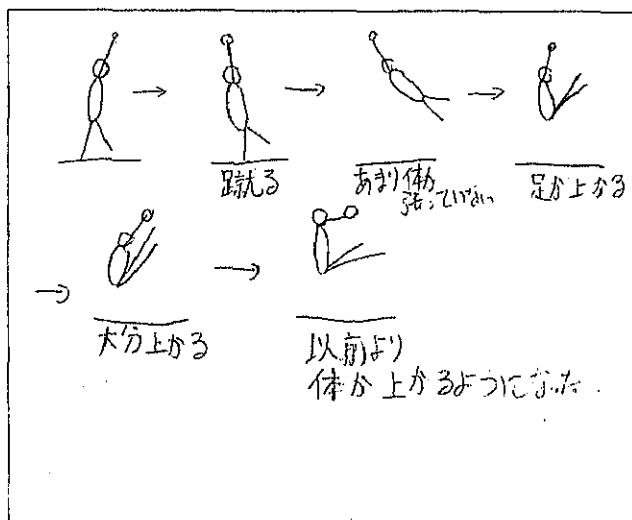 蹴る
あまり体が
張っていない
足が上がる
大分上がる
以前より
体が上がるようになった